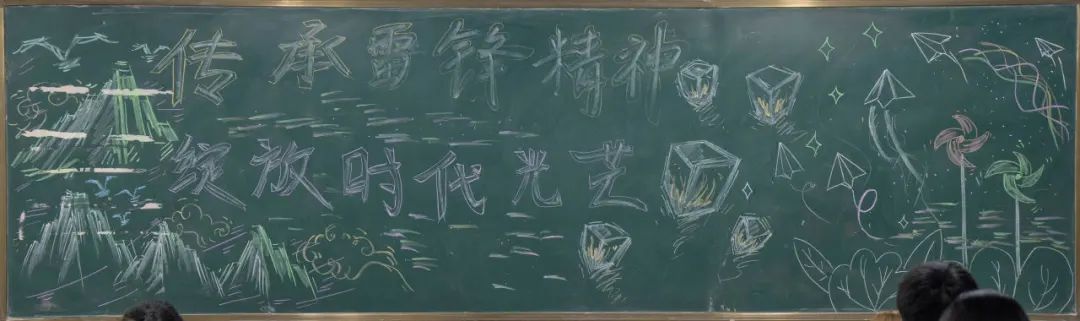 传承雷锋精神
绽放时代光芒